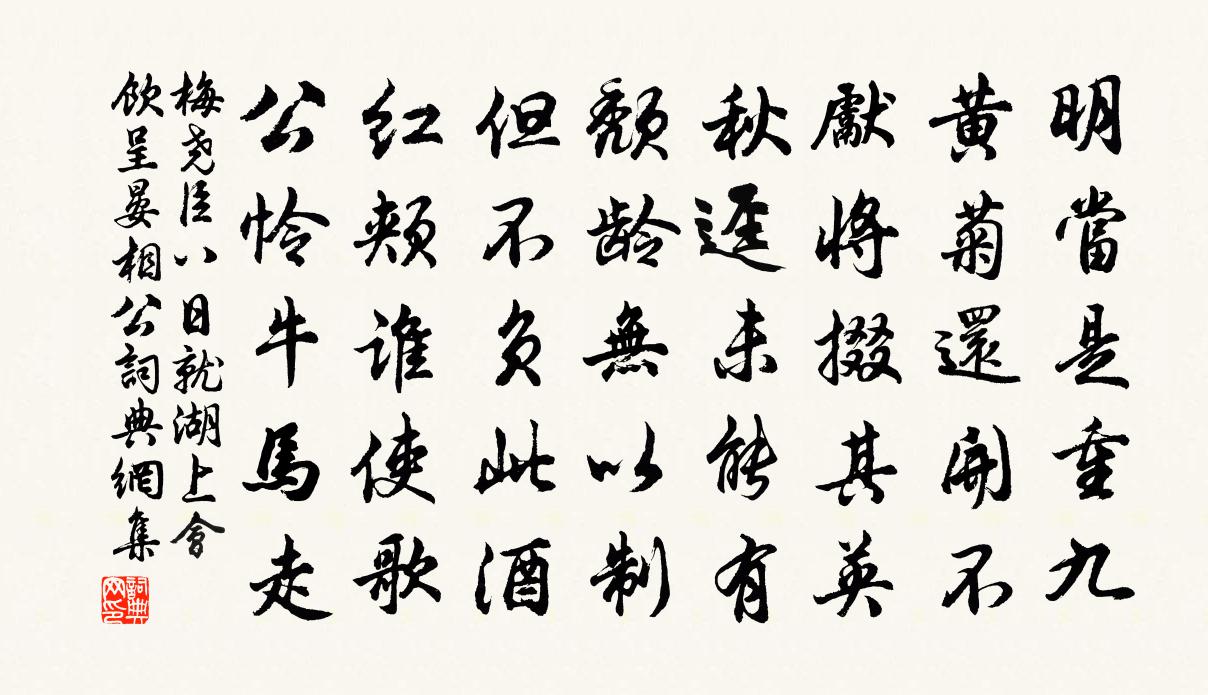 明當是重九
黄菊還開不
獻將掇其英
秋遲未能有
頹龄無以制
但不負此酒
红頰谁使歌
公怜牛馬走
梅尧臣八日就湖上會
飲呈晏相公詞典網集
詞典网印